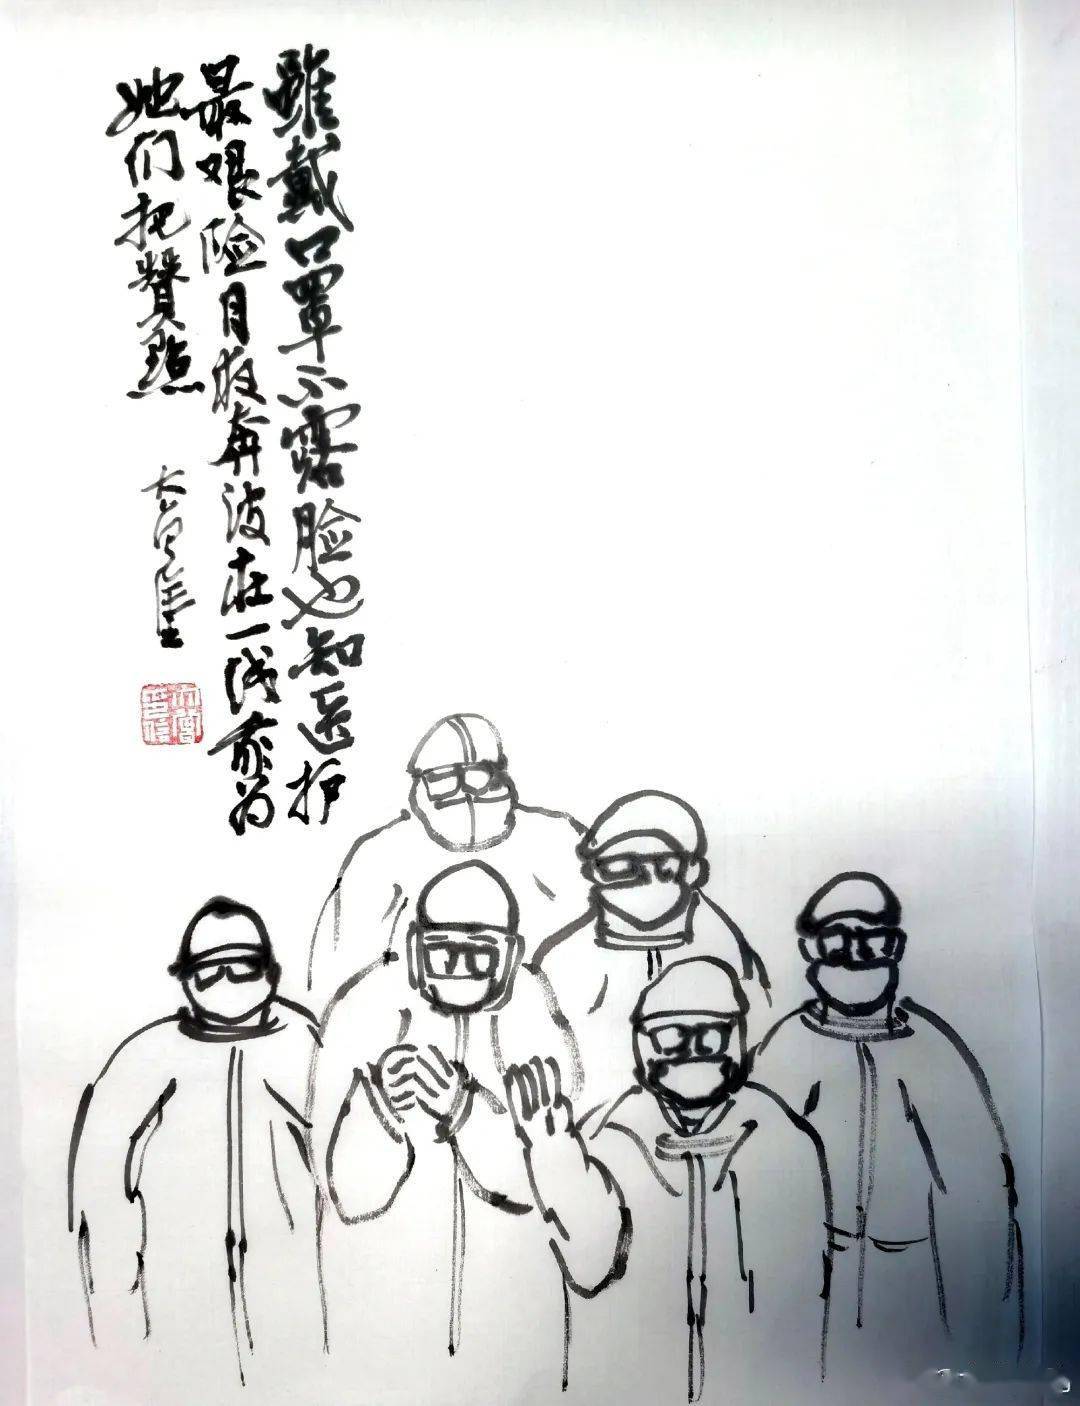 雖戴口罩不露脸也知医护
最艰险月夜奔波在一线为
她们把贊點